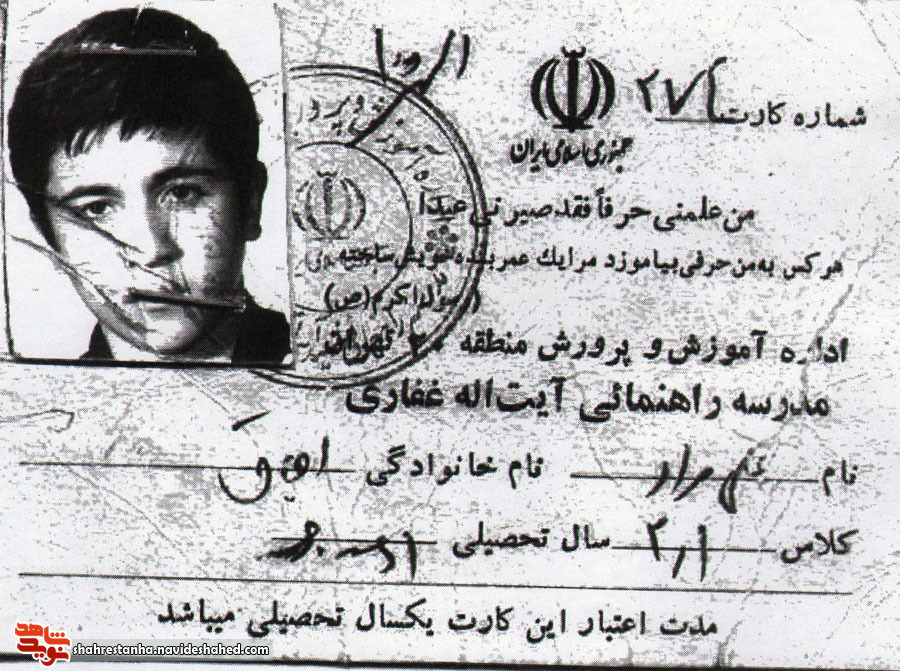 شماره کارت ۲۷۱
جمهوری اسلامی ایران
من علمنی حرفاً فقد صیرنی عبداً
هر کس به من حرفی بیاموزد مرا یك عمر بنده خویش ساخته
رسول اکرم (ص)
اداره آموزش و پرورش منطقه ۲۰ تهران
مدرسه راهنمائی آیت اله غفاری
نام نام خانوادگی
کلاس ۲/۱ سال تحصیلی
مدت اعتبار این کارت یکسال تحصیلی میباشد
نوید شاهد
shahrestanha.navideshahed.com